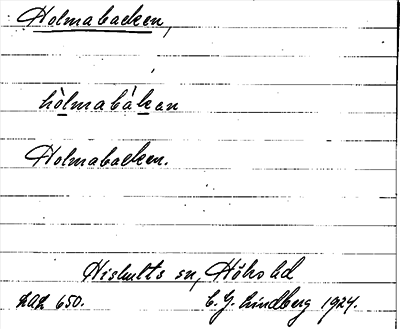 Holmabacken,
hòlmabàkan
Holmabacken.
Hishults sn, Höks hd
650. C. G. Lindberg 1924.